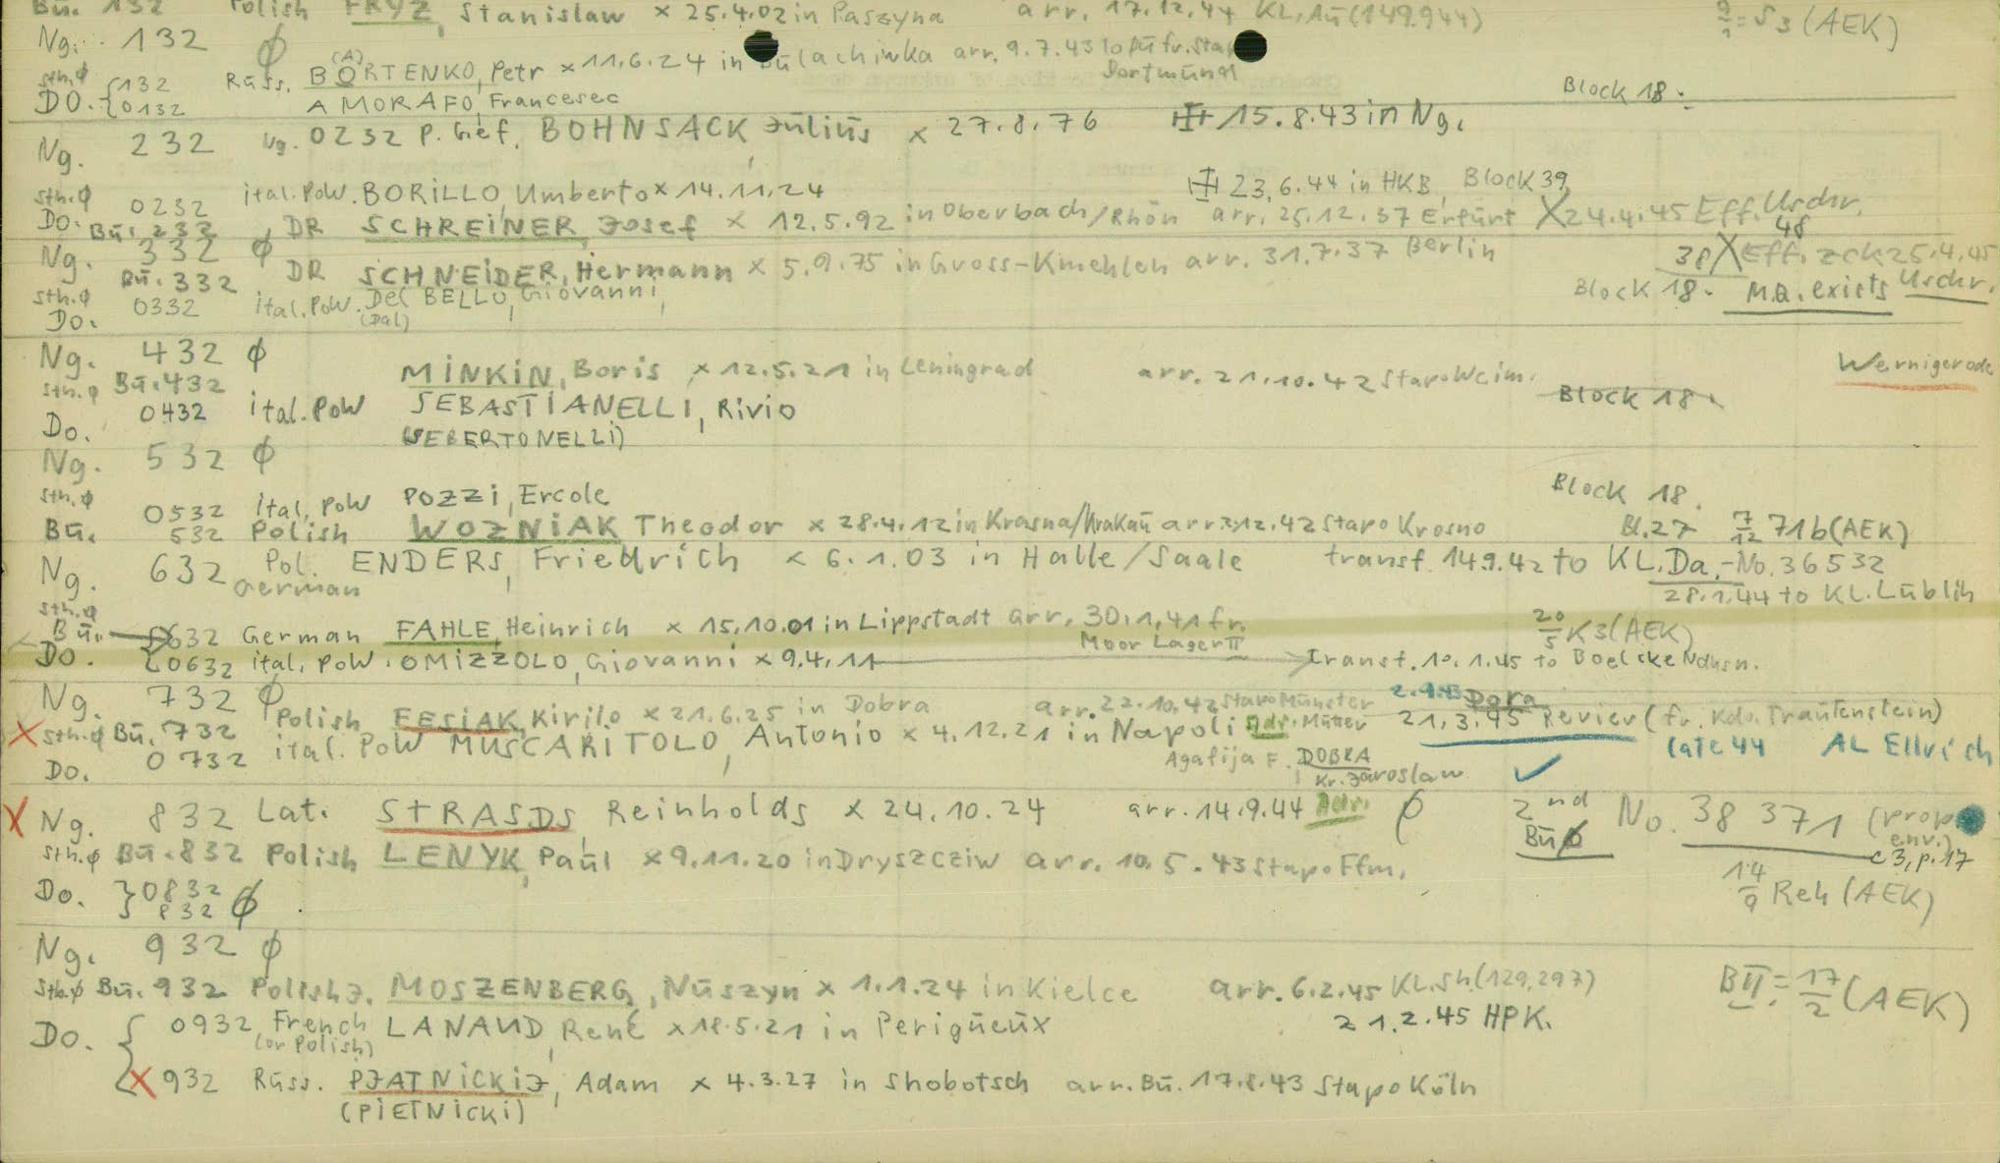 Bū. 132 Polish FRYZ, Stanislaw × 25.4.02 in Paszyna arr. 17.12.44 KL.Au (149.944) S3 (AEK)
Ng. 132 ϕ
sth.ϕ {132 Rūss. BORTENKO, Petr × 11.6.24 in arr. 9.7.43 Dortmūnd
(A)
DO. {0132 AMORAFO, Francesec Block 18.
Ng. 232 Ng. 0232 P. Gef. BOHNSACK Jūliūs × 27.8.76 15.8.43 in Ng.
sth.ϕ
Do. 0232 ital. PoW. BORILLO, Umberto × 14.11.24 23.6.44 in HKB, Block 39
Bū. 232 DR SCHREINER, Josef × 12.5.92 in Oberbach/Rhön arr. 25.12.37 Erfūrt X 24.4.45 Eff. Uschr.
48
Ng. 332 ϕ
Bū. 332 DR SCHNEIDER, Hermann × 5.9.75 in Gross-Kmehlen arr. 31.7.37 Berlin 38 X Eff. zck 25.4.45 Uschr.
sth.ϕ
Do. 0332 ital. PoW. Del BELLO, Giovanni, Block 18. M.Q. exists
(Dal)
Ng. 432 ϕ
sth.ϕ Bū. 432 MINKIN, Boris × 12.5.21 in Leningrad arr. 21.10.42 Stapo Weim. Wernigerode
Do. 0432 ital. PoW SEBASTIANELLI, Rivio Block 18.
(SEBERTONELLI)
Ng. 532 ϕ
sth.ϕ 0532 ital. PoW POZZI, Ercole Block 18.
Bū. 532 Polish WOZNIAK Theodor × 28.4.12 in Krasna/Krakaū Stapo Krosno Bl. 27 7/12 71b (AEK)
Ng. 632 Pol. German ENDERS, Friedrich × 6.1.03 in Halle/Saale transf. 14.9.42 to KL. Da.-No. 36532
28.1.44 to KL. Lūblin
sth.ϕ
Bū. {632 German FAHLE, Heinrich × 15.10.01 in Lippstadt arr. 30.1.41 fr. 20/5 K3 (AEK)
Moor Lager II
Do. {0632 ital. PoW. OMIZZOLO, Giovanni × 9.4.11 Transf. 10.1.45 to Boelcke Ndhsn.
Ng. 732 ϕ
X sth.ϕ Bū. 732 Polish FESIAK, Kirilo × 21.6.25 in Dobra arr. 22.10.42 Stapo Münster Dora
Do. 0732 ital. PoW MUSCARITOLO, Antonio × 4.12.21 in Napoli Adr. Mūtter 21.3.45 Revier (fr. Kdo. Trautenstein)
Agafija F. DOBRA late 44 AL Ellrich
Kr. Jaroslaw ✓
X Ng. 832 Lat. STRASDS Reinholds × 24.10.24 arr. 14.9.44 Adr. 2nd No. 38 371 (prop. env.)
Bū c3, p.17
sth.ϕ Bū. 832 Polish LENYK, Paūl × 9.11.20 in Dryszcziw arr. 10.5.43 Stapo Ffm. 14/9 Reh (AEK)
Do. }0832
832 ϕ
Ng. 932 ϕ
sth.ϕ Bū. 932 Polish J. MOSZENBERG, Nūszyn × 1.1.24 in Kielce arr. 6.2.45 KL.Sh. (129,297) BII = 17/2 (AEK)
21.2.45 HPK.
Do. { 0932 French LANAUD, René × 18.5.21 in Perigūeūx
(or Polish)
X 932 Rūss. PJATNICKIJ, Adam × 4.3.27 in Shobotsch arr. Bū. 17.8.43 Stapo Köln
(PIETNICKI)